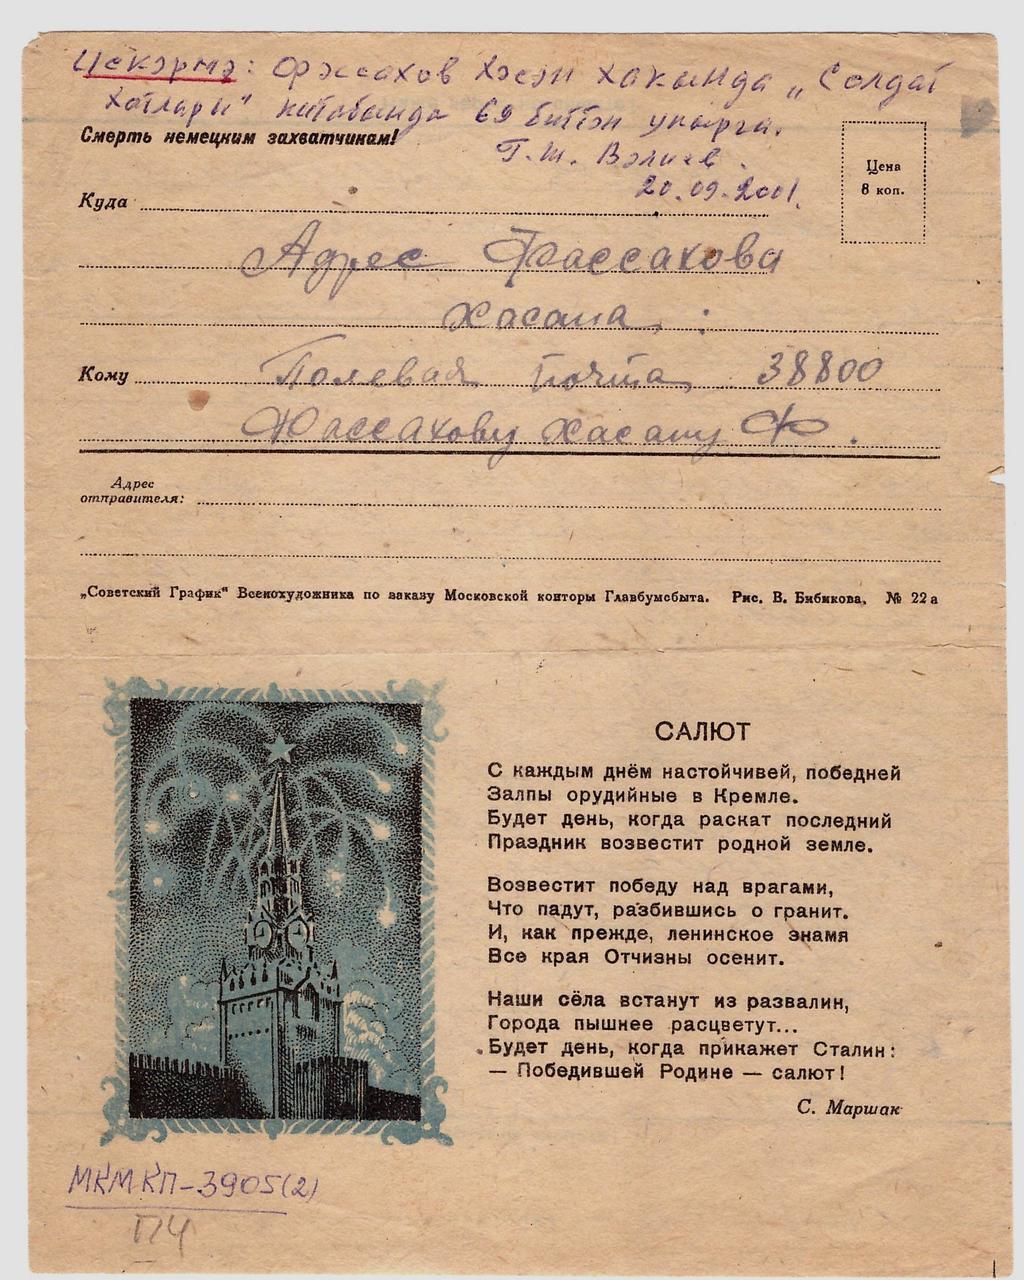 Искәрмә: Фәссахов Хәсән хакында „Солдат
хатлары" китабында 69 биттән укырга.
Смерть немецким захватчикам!
Г.Ш. Вәлиев.
20.09.2001.
Цена
8 коп.
Куда
Адрес Фассахова
Хасана :
Кому Полевая почта 38800
Фассахову Хасану Ф.
Адрес
отправителя:
„Советский График" Всекохудожника по заказу Московской конторы Главбумсбыта. Рис. В. Бибикова. № 22а
САЛЮТ
С каждым днём настойчивей, победней
Залпы орудийные в Кремле.
Будет день, когда раскат последний
Праздник возвестит родной земле.
Возвестит победу над врагами,
Что падут, разбившись о гранит.
И, как прежде, ленинское знамя
Все края Отчизны осенит.
Наши сёла встанут из развалин,
Города пышнее расцветут...
Будет день, когда прикажет Сталин:
— Победившей Родине — салют!
С. Маршак
МКМ КП-3905(2)
ПЧ